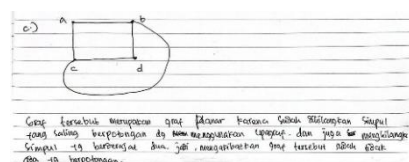 c.)
a b
c d
Graf tersebut merupakan graf planar karena sudah dihilangkan simpul
yang saling berpotongan dg menggunakan upagraf. dan juga menghilangkan
simpul yg berderajat dua. jadi, mengakibatkan graf tersebut tidak
ada yg berpotongan.